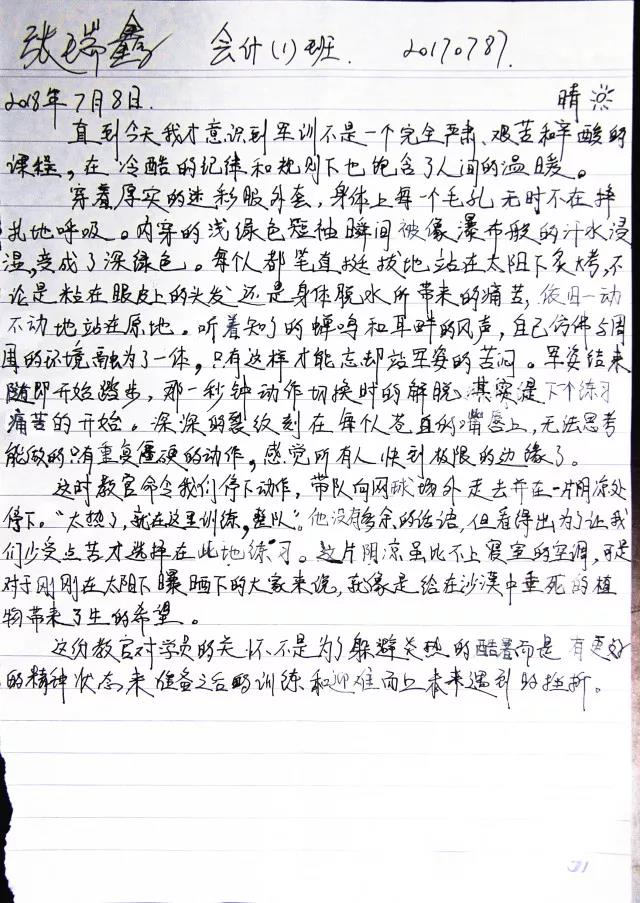 张瑞鑫 会计(1)班. 20170787.
2018年7月8日. 晴
直到今天我才意识到军训不是一个完全严肃、艰苦和辛酸的
课程,在冷酷的纪律和规则下也饱含了人间的温暖。
穿着厚实的迷彩服外套,身体上每一个毛孔无时不在挣
扎地呼吸。内穿的浅绿色短袖瞬间被像瀑布般的汗水浸
湿,变成了深绿色。每个人都笔直挺拔地站在太阳下炙烤,不
论是粘在眼皮上的头发还是身体脱水所带来的痛苦,依旧一动
不动地站在原地。听着知了的蝉鸣和耳畔的风声,自己仿佛与周
围的环境融为了一体,只有这样才能忘却站军姿的苦闷。军姿结束
随即开始踏步,那一秒钟动作切换时的解脱其实是下个练习
痛苦的开始。深深的裂纹刻在每个人苍直的嘴唇上,无法思考
能做的只有重复僵硬的动作,感觉所有人快到极限的边缘了。
这时教官命令我们停下动作,带队向网球场外走去并在一片阴凉处
停下。“太热了,就在这里训练,整队”。他没有多余的话语,但看得出为了让我
们少受点苦才选择在此地练习。这片阴凉虽比不上寝室的空调,可是
对于刚刚在太阳下曝晒下的大家来说,就像是给在沙漠中垂死的植
物带来了生的希望。
这份教官对学员的关怀不是为了躲避炎热的酷暑而是有更好
的精神状态来准备之后的训练和迎难而上未来遇到的挫折。